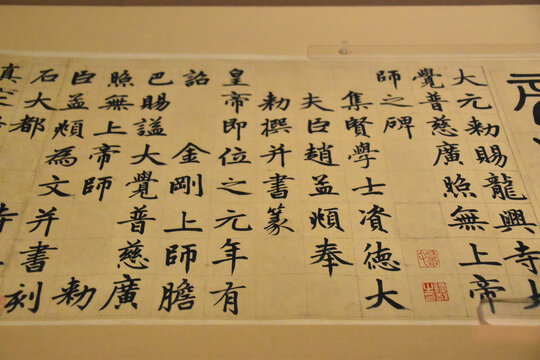 大元勑賜龍興寺大
覺普慈廣照無上帝
師之碑
集賢學士資德大
夫臣趙孟頫奉
勑撰并書篆
皇帝即位之元年有
詔金剛上師膽
巴賜謚大覺普慈廣
照無上帝師勑
臣孟頫為文并書刻
石大都寺
真